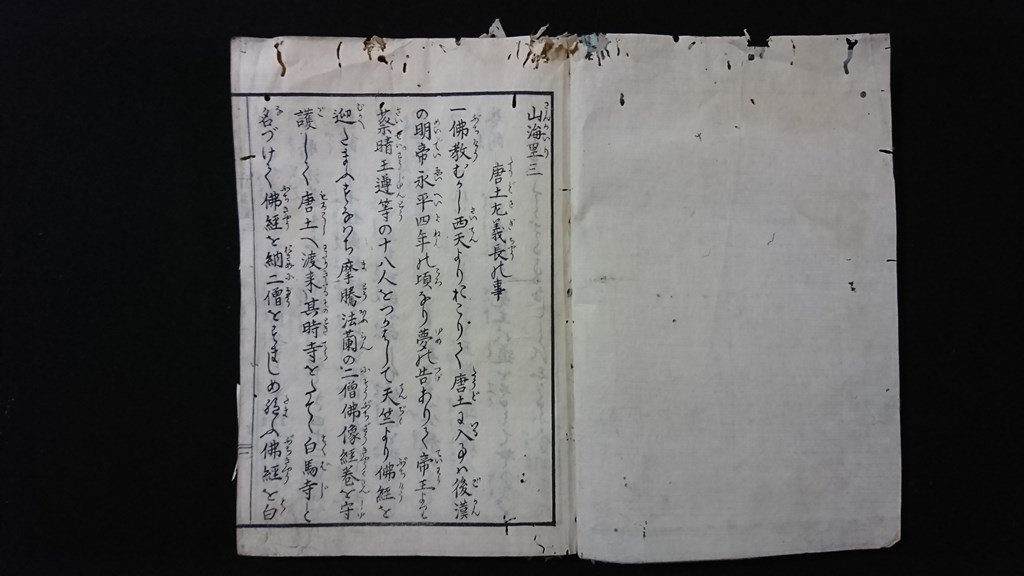 山海里三
唐土左義長の事
一佛教むかし西天よりおこりて唐土に入事は後漢
の明帝永平四年の頃なり夢の告ありて帝王より
蔡暗王遵等の十八人をつかはして天竺より佛經を
迎たまへはすなはち摩騰法蘭の二僧佛像經巻を守
護して唐土へ渡来其時寺をたてて白馬寺と
名づけて佛經を納二僧をすましめ給ふ佛經を白